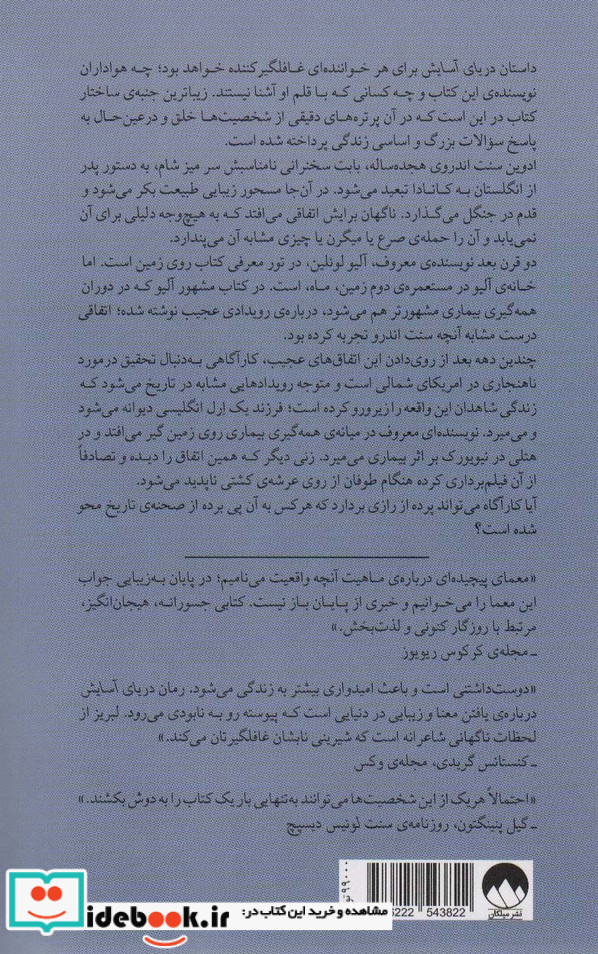 داستان دریای آسایش برای هر خواننده‌ای غافلگیرکننده خواهد بود؛ چه هواداران
نویسنده‌ی این کتاب و چه کسانی که با قلم او آشنا نیستند. زیباترین جنبه‌ی ساختار
کتاب در این است که در آن پرتره‌های دقیقی از شخصیت‌ها خلق و درعین‌حال به
پاسخ سؤالات بزرگ و اساسی زندگی پرداخته شده است.
ادوین سنت اندروی هجده‌ساله، بابت سخنرانی نامناسبش سر میز شام، به دستور پدر
از انگلستان به کانادا تبعید می‌شود. در آن‌جا مسحور زیبایی طبیعت بکر می‌شود و
قدم در جنگل می‌گذارد. ناگهان برایش اتفاقی می‌افتد که به هیچ‌وجه دلیلی برای آن
نمی‌یابد و آن را حمله‌ی صرع یا میگرن یا چیزی مشابه آن می‌پندارد.
دو قرن بعد نویسنده‌ی معروف، آلیو لوئلین، در تور معرفی کتاب روی زمین است. اما
خانه‌ی آلیو در مستعمره‌ی دوم زمین، ماه، است. در کتاب مشهور آلیو که در دوران
همه‌گیری بیماری مشهورتر هم می‌شود، درباره‌ی رویدادی عجیب نوشته شده؛ اتفاقی
درست مشابه آنچه سنت اندرو تجربه کرده بود.
چندین دهه بعد از روی‌دادن این اتفاق‌های عجیب، کارآگاهی به‌دنبال تحقیق درمورد
ناهنجاری در امریکای شمالی است و متوجه رویدادهایی مشابه در تاریخ می‌شود که
زندگی شاهدان این واقعه را زیرورو کرده است؛ فرزند یک ارل انگلیسی دیوانه می‌شود
و می‌میرد. نویسنده‌ای معروف در میانه‌ی همه‌گیری بیماری روی زمین گیر می‌افتد و در
هتلی در نیویورک بر اثر بیماری می‌میرد. زنی دیگر که همین اتفاق را دیده و تصادفاً
از آن فیلم‌برداری کرده هنگام طوفان از روی عرشه‌ی کشتی ناپدید می‌شود.
آیا کارآگاه می‌تواند پرده از رازی بردارد که هرکس به آن پی برده از صحنه‌ی تاریخ محو
شده است؟
«معمای پیچیده‌ای درباره‌ی ماهیت آنچه واقعیت می‌نامیم؛ در پایان به‌زیبایی جواب
این معما را می‌خوانیم و خبری از پایان باز نیست. کتابی جسورانه، هیجان‌انگیز،
مرتبط با روزگار کنونی و لذت‌بخش.»
ـ مجله‌ی کرکوس ریویوز
«دوست‌داشتنی است و باعث امیدواری بیشتر به زندگی می‌شود. رمان دریای آسایش
درباره‌ی یافتن معنا و زیبایی در دنیایی است که پیوسته رو به نابودی می‌رود. لبریز از
لحظات ناگهانی شاعرانه است که شیرینی نابشان غافلگیرتان می‌کند.»
ـ کنستانس گریدی، مجله‌ی وکس
«احتمالاً هریک از این شخصیت‌ها می‌توانند به‌تنهایی بار یک کتاب را به دوش بکشند.»
ـ گیل پنینگتون، روزنامه‌ی سنت لوئیس دیسپچ
۹۹۰۰۰
6222 543822
نشر میلکان
مشاهده و خرید این کتاب در:
idebook.ir